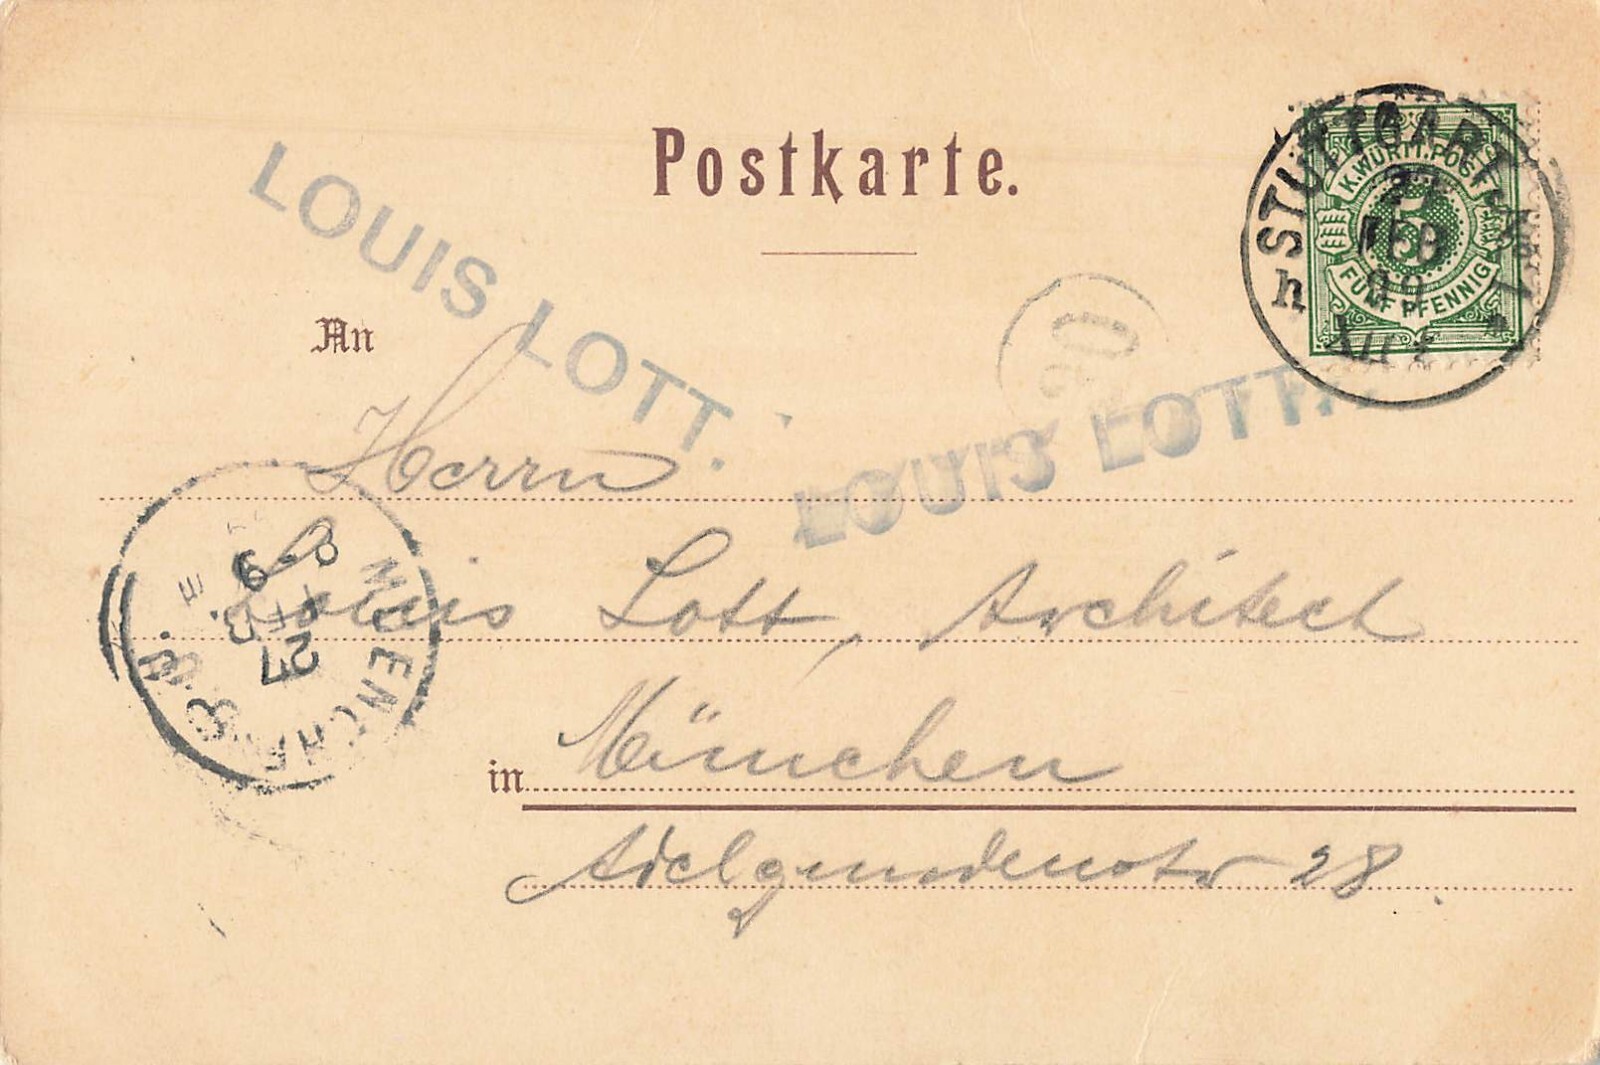 Postkarte.
STUTTGART No 1
K. WÜRTT. POST
FÜNF PFENNIG
5
LOUIS LOTT.
LOUIS LOTT.
An
Herrn
Louis Lott, Architect
in München
Adelgundenstr 28.
MUENCHEN
27
FEB.
8-9